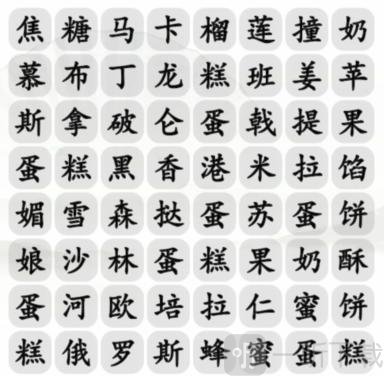 焦糖马卡榴莲撞奶
慕布丁龙糕班姜苹
斯拿破仑蛋戟提果
蛋糕黑香港米拉馅
媚雪森挞蛋苏蛋饼
娘沙林蛋糕果奶酥
蛋河欧培拉仁蜜饼
糕俄罗斯蜂蜜蛋糕